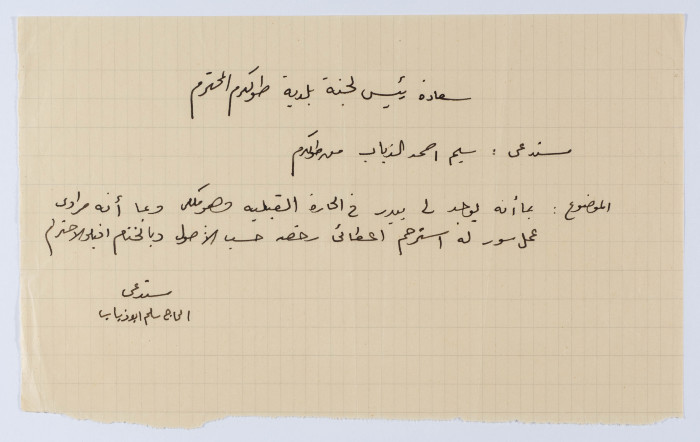 سعادة رئيس لجنة بلدية طولكرم المحترم
مستدعي : سليم احمد الذياب من طولكرم
الموضوع : بما أنه يوجد لي بيدر في الحارة القبليه وهو ملكي وبما أنه مرادي
عمل سور له استرحم اعطائي رخصه حسب الأصول وبالختام اقبلوا الاحترام
مستدعي
الحاج سليم ابو ذياب